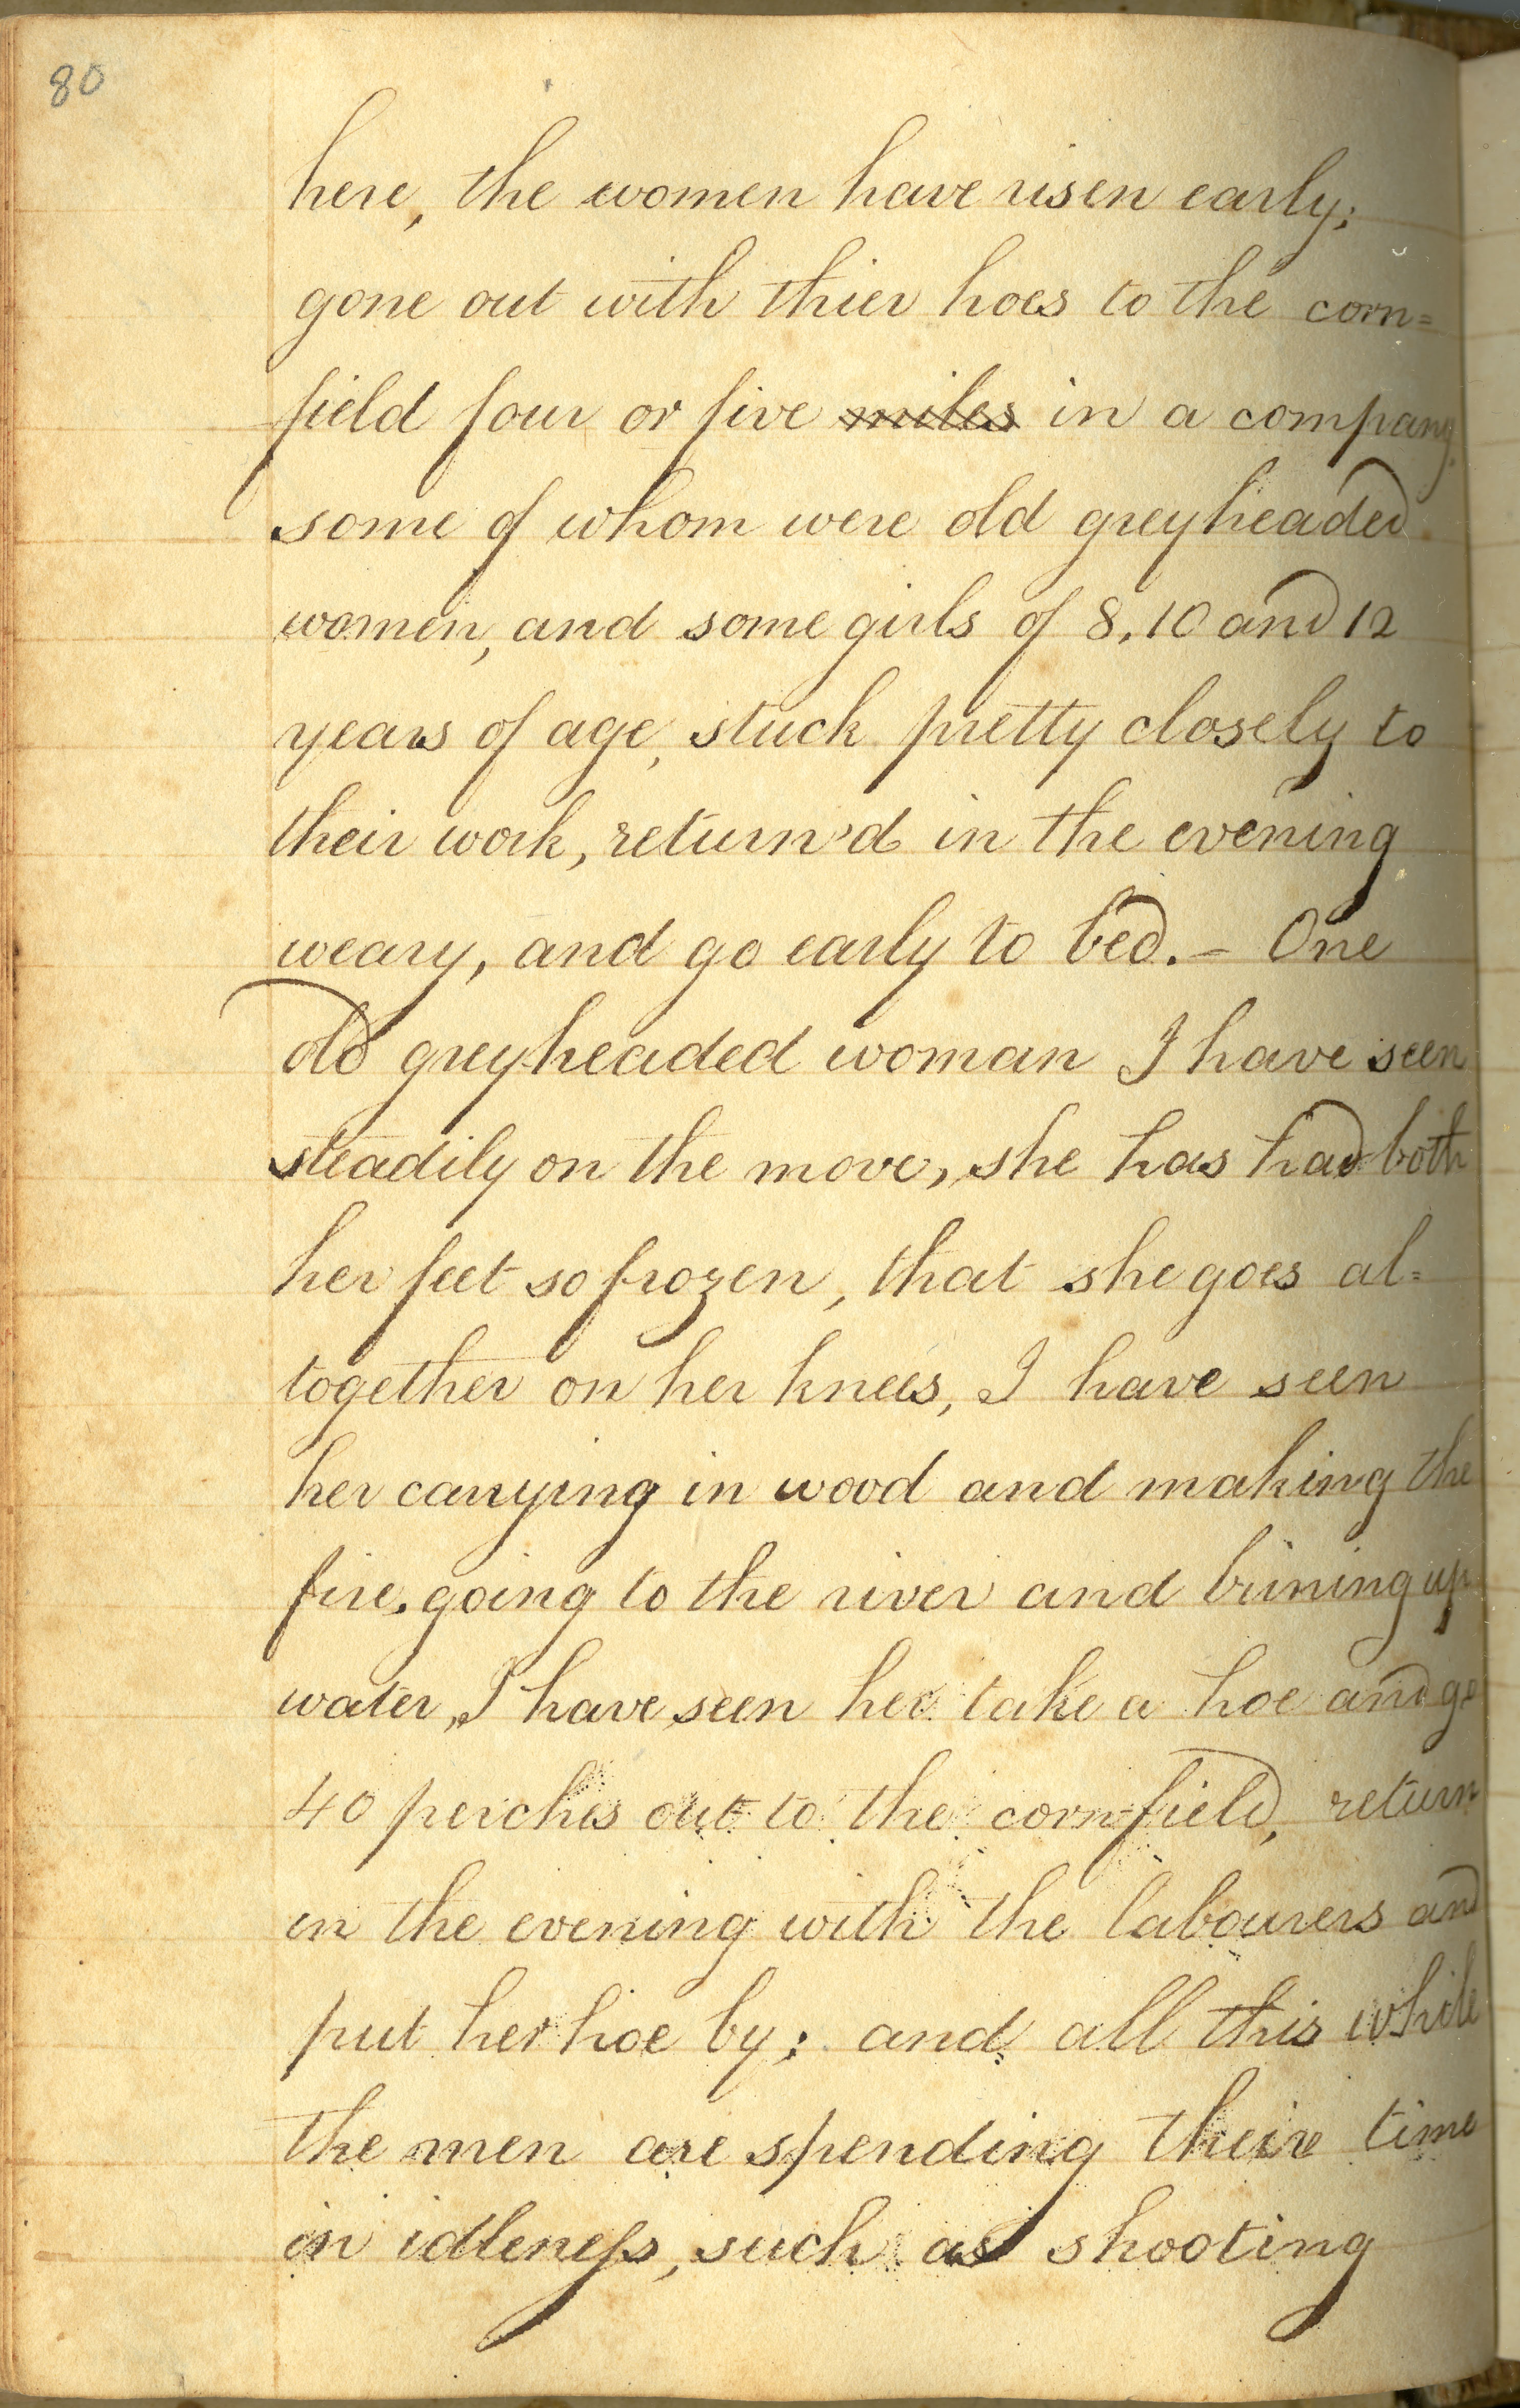 80
here, the women have risen early;
gone out with thier hoes to the corn=
field four or five miles in a company.
some of whom were old greyheaded
women, and some girls of 8, 10 and 12
years of age, stuck pretty closely to
their work, return'd in the evening
weary, and go early to bed. — One
old greyheaded woman I have seen
steadily on the move, she has had both
her feet so frozen, that she goes al=
together on her knees, I have seen
her carrying in wood and making the
fire, going to the river and brining up
water, I have seen her take a hoe and go
40 perches out to the cornfield, return
in the evening with the labourers and
put her hoe by; and all this while
the men are spending their time
in idleness, such as shooting